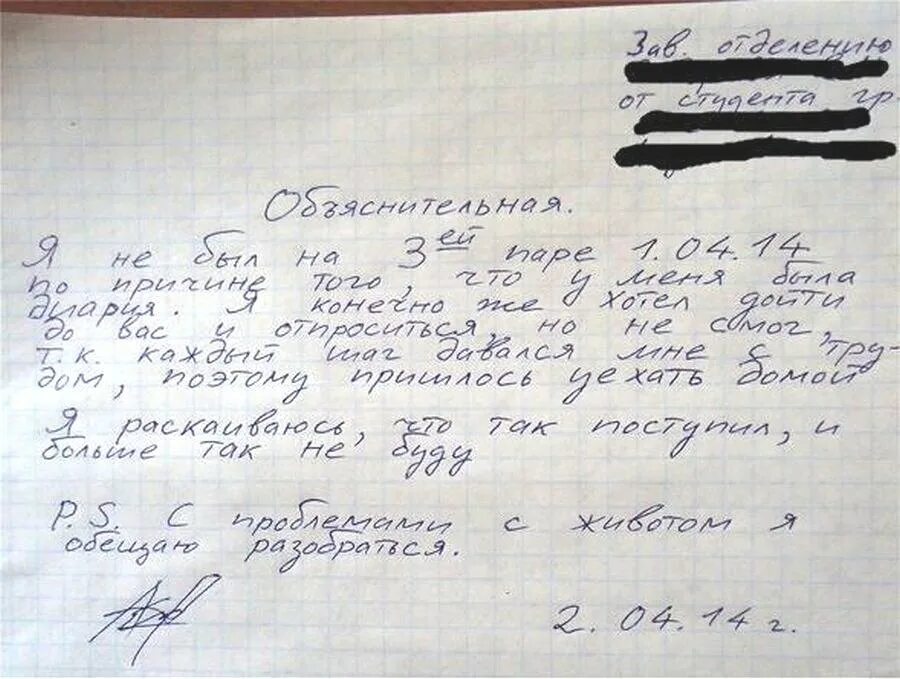 Зав. отделению
от студента гр.
Объяснительная.
Я не был на 3ей паре 1.04.14
по причине того, что у меня была
диария. Я конечно же хотел дойти
до вас и отпроситься, но не смог,
т.к. каждый шаг давался мне с тру-
дом, поэтому пришлось уехать домой
Я раскаиваюсь, что так поступил, и
больше так не буду
P.S. С проблемами с животом я
обещаю разобраться.
2.04.14г.